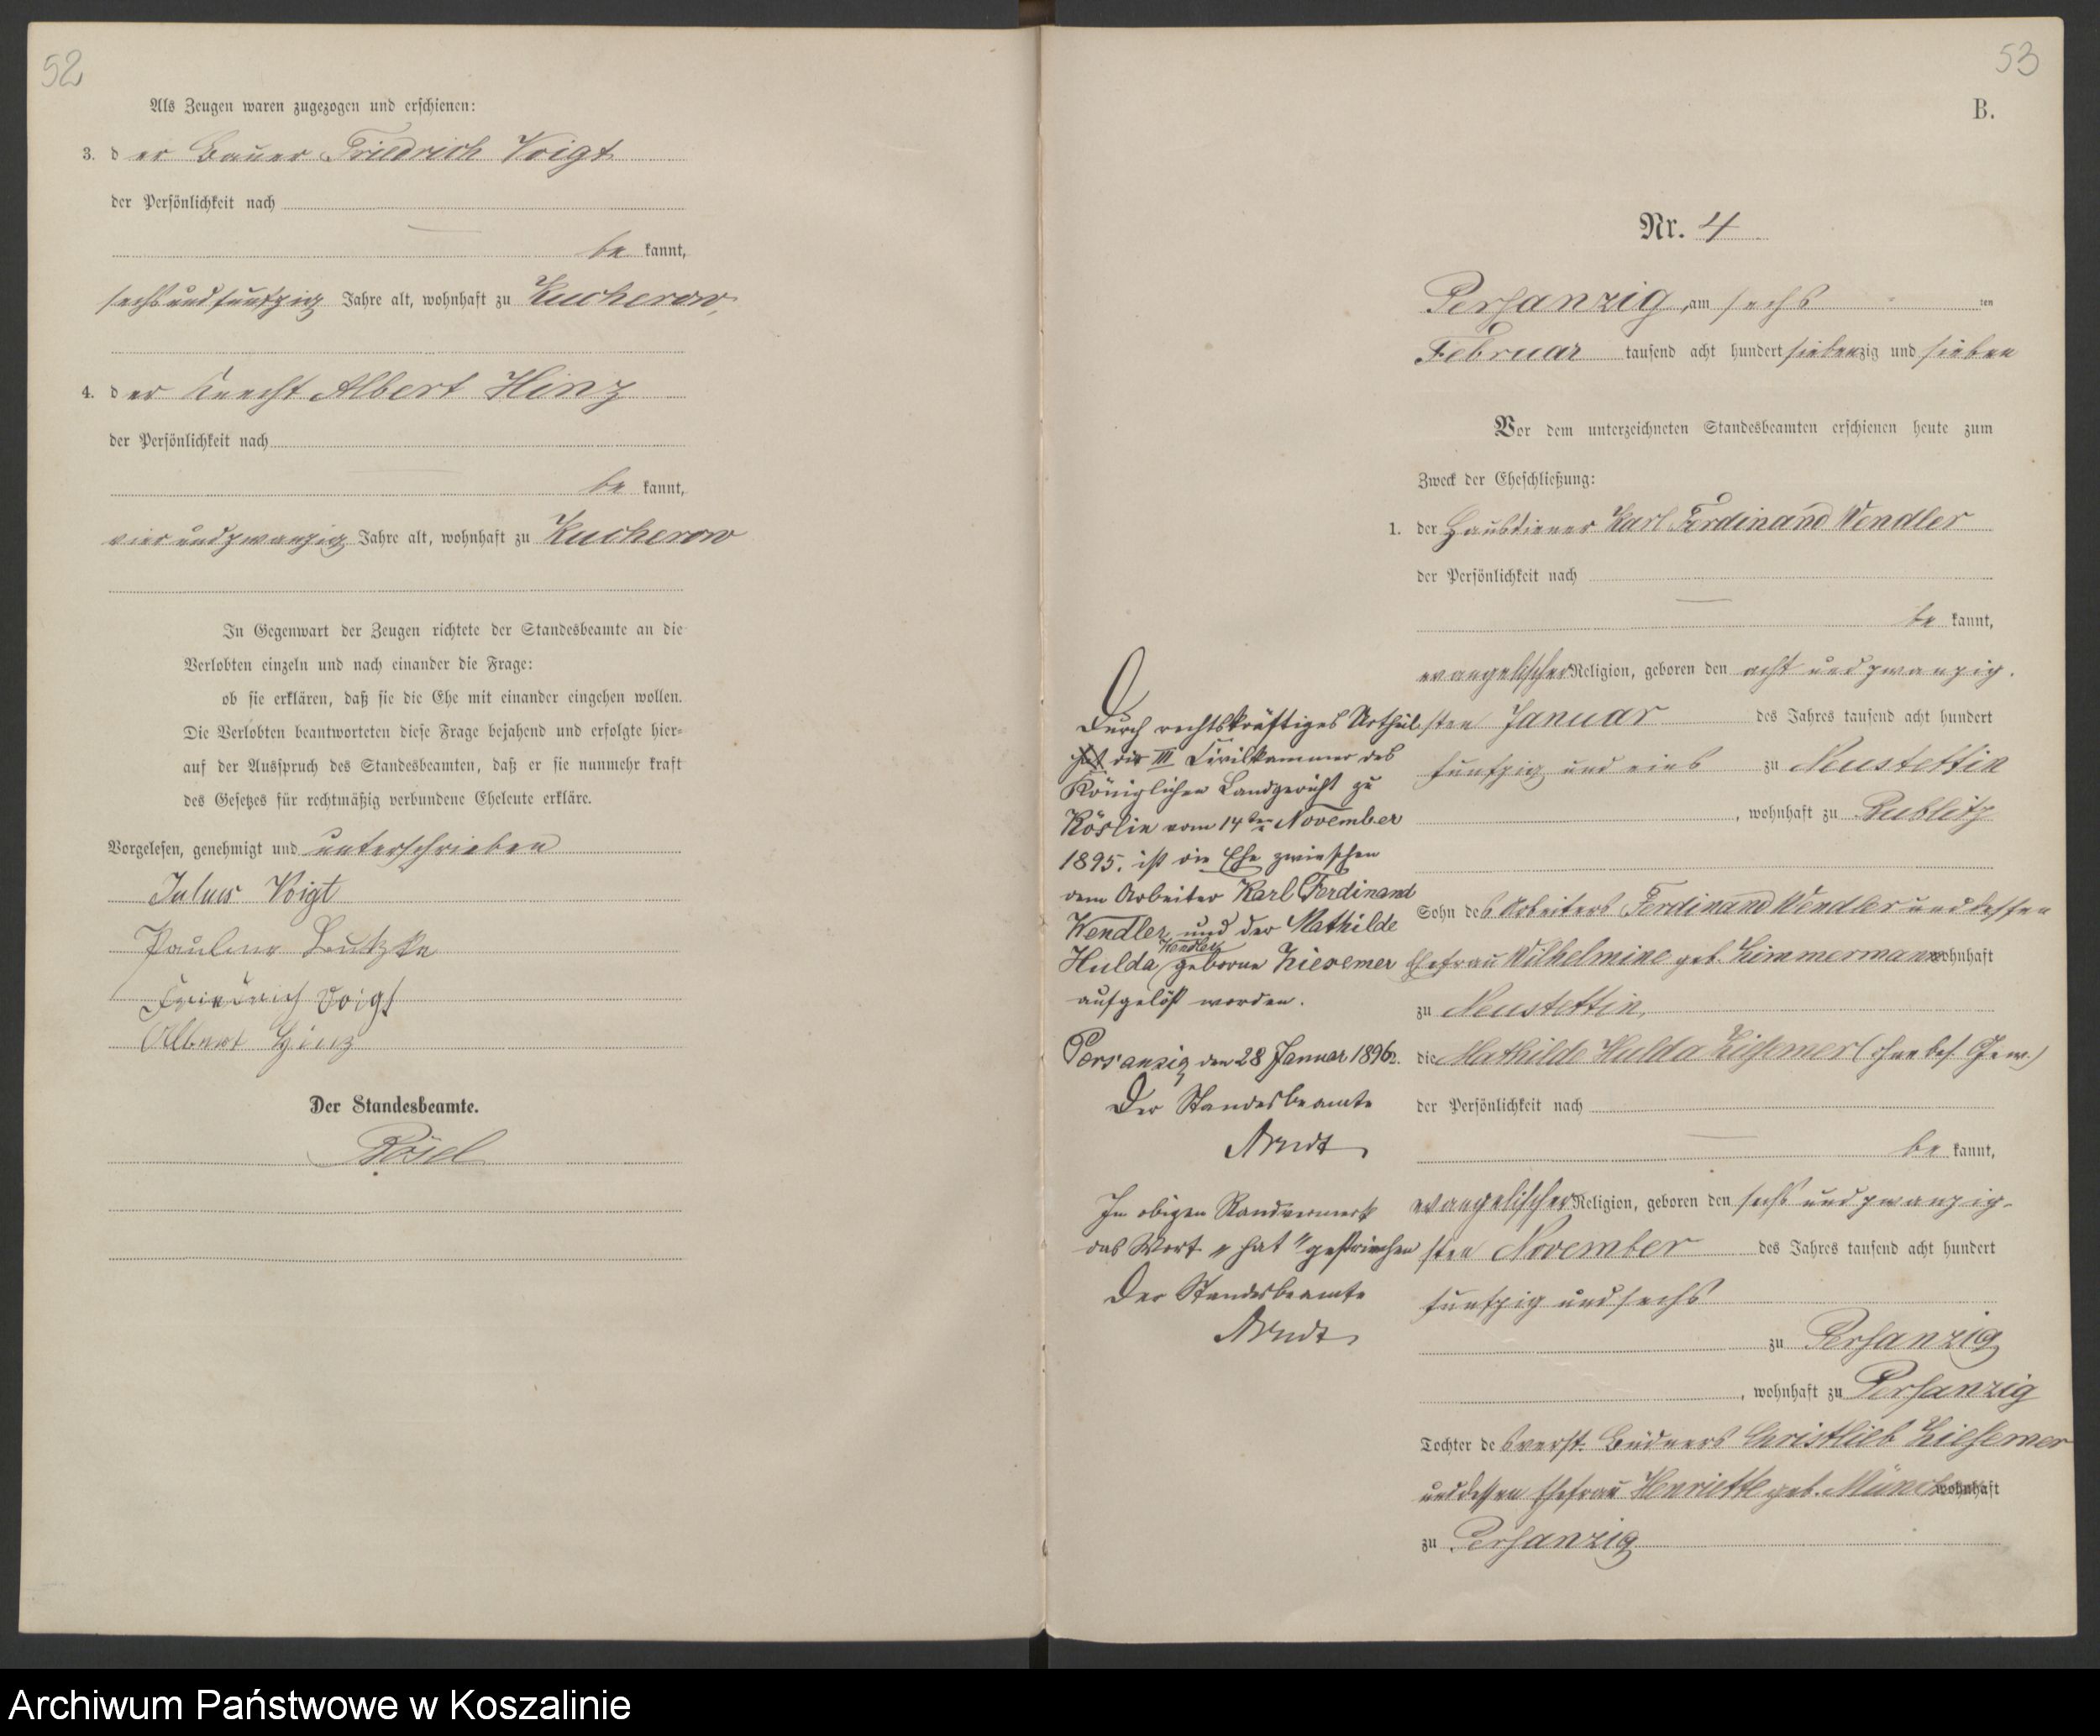 52
Als Zeugen waren zugezogen und erschienen:
3. der Bauer Friedrich Voigt
der Persönlichkeit nach
be kannt,
sechs und funfzig Jahre alt, wohnhaft zu Kucherow,
4. der Knecht Albert Hinz
der Persönlichkeit nach
be kannt,
vier und zwanzig Jahre alt, wohnhaft zu Kucherow
In Gegenwart der Zeugen richtete der Standesbeamte an die
Verlobten einzeln und nach einander die Frage:
ob sie erklären, daß sie die Ehe mit einander eingehen wollen.
Die Verlobten beantworteten diese Frage bejahend und erfolgte hier-
auf der Ausspruch des Standesbeamten, daß er sie nunmehr kraft
des Gesetzes für rechtmäßig verbundene Eheleute erkläre.
Vorgelesen, genehmigt und unterschrieben
Julius Voigt
Pauline Lutzke
Friedrich Voigt
Albert Hinz
Der Standesbeamte.
Rösel
53
B.
Nr. 4
Persanzig, am sechs ten
Februar tausend acht hundert siebenzig und sieben
Vor dem unterzeichneten Standesbeamten erschienen heute zum
Zweck der Eheschließung:
1. der Hausdiener Karl Ferdinand Wendler
der Persönlichkeit nach
be kannt,
evangelischer Religion, geboren den acht und zwanzig-
sten Januar des Jahres tausend acht hundert
funfzig und eins zu Neustettin
, wohnhaft zu Bublitz
Sohn des Arbeiters Ferdinand Wendler und dessen
Ehefrau Wilhelmine geb. Zimmermann wohnhaft
zu Neustettin,
die Mathilde Hulda Ziesemer (ohne bes. Gew.)
der Persönlichkeit nach
be kannt,
evangelischer Religion, geboren den sechs und zwanzig-
sten November des Jahres tausend acht hundert
funfzig und sechs
zu Persanzig
, wohnhaft zu Persanzig
Tochter des verst. Büdners Christlieb Ziesemer
und dessen Ehefrau Henriette geb. Münchow wohnhaft
zu Persanzig
Durch rechtskräftiges Urtheil
hat die III Civilkammer des
Königlichen Landgericht zu
Köslin vom 14ten November
1895. ist die Ehe zwieschen
dem Arbeiter Karl Ferdinand
Wendler und der Mathilde
Hulda Wendler geborne Ziesemer
aufgelöst worden.
Persanzig den 28 Januar 1896.
Der Standesbeamte
Arndt
In obigen Randvermerk
das Wort "hat" gestriechen
Der Standesbeamte
Arndt
Archiwum Państwowe w Koszalinie